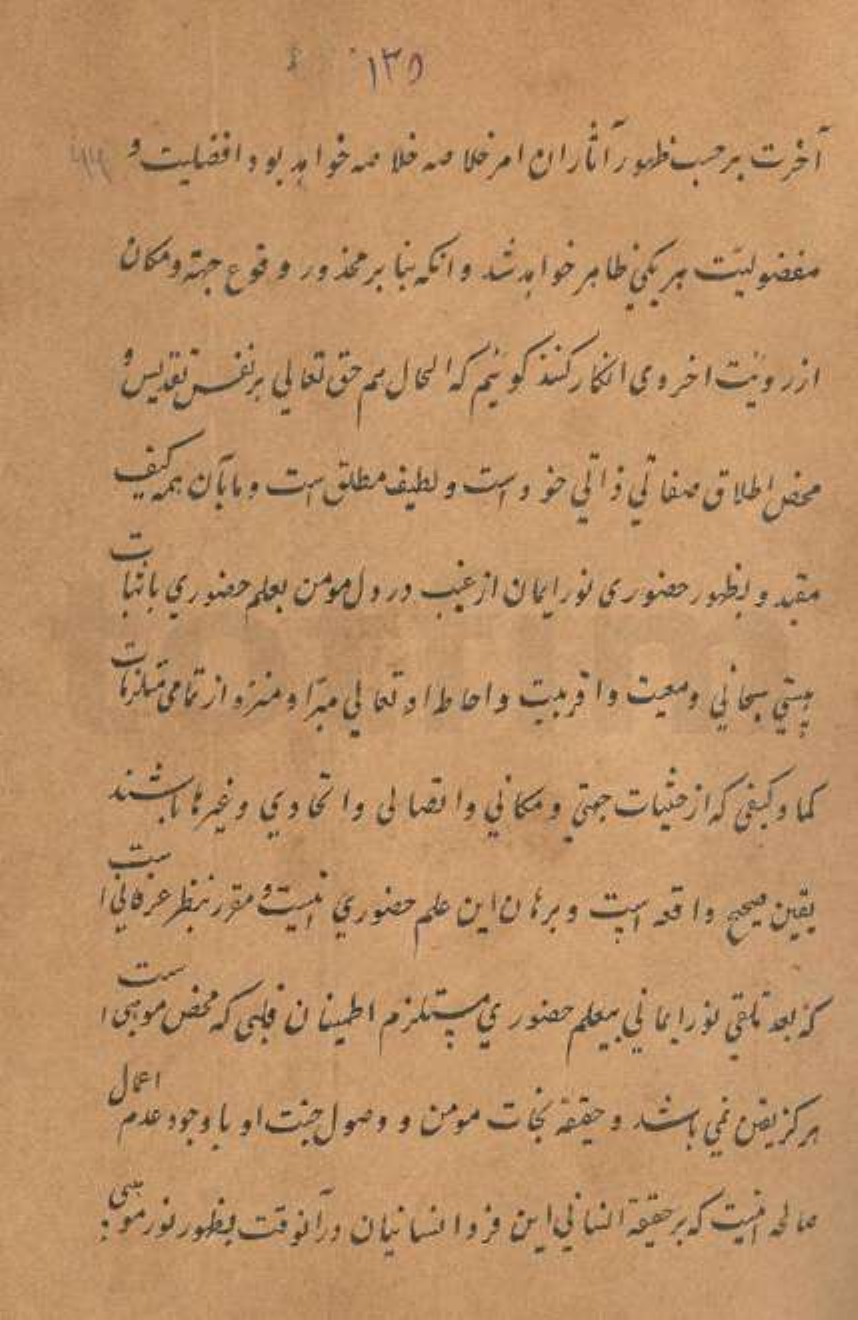 ۱۳۵
آخرت بر حسب ظهور آثار ان امر خلاصه خلاصه خواهد بود افضلیت و
مفضولیّت هر یکی ظاهر خواهد شد و انکه بنا بر محذور وقوع جهة و مکان
از رویٔت اخروی انکار کنند کوئیم که الحال هم حق تعالی بر نفس تقدیس و
محض اطلاق صفاتی ذاتی خود است و لطیف مطلق است و مابآن همه کیف
مقید و بظهور حضوری نور ایمان از غیب در دل مومن بعلم حضوری باثبات
هستی سبحانی و معیت و اقربیت و احاطه او تعالی مبرّا و منزه از تمامی متلزمات
کما و کیفی که از حیثیات جهتی و مکانی و اتصالی و اتحادی و غیرها باشند
یقین صحیح واقعه است و برهان این علم حضوری انیست و مقرر بنظر عرفانی است
که بعد تلقی نور ایمانی بیعلم حضوری مستلزم اطمینان قلبی که محض موهبی است
هرکز یقین نمی باشد و حقیقة نجات مومن و وصول جنت او با وجود عدم اعمال
صالحه انیست که بر حقیقة انسانی این فرد انسانیان در آنوقت بظهور نور موهبی